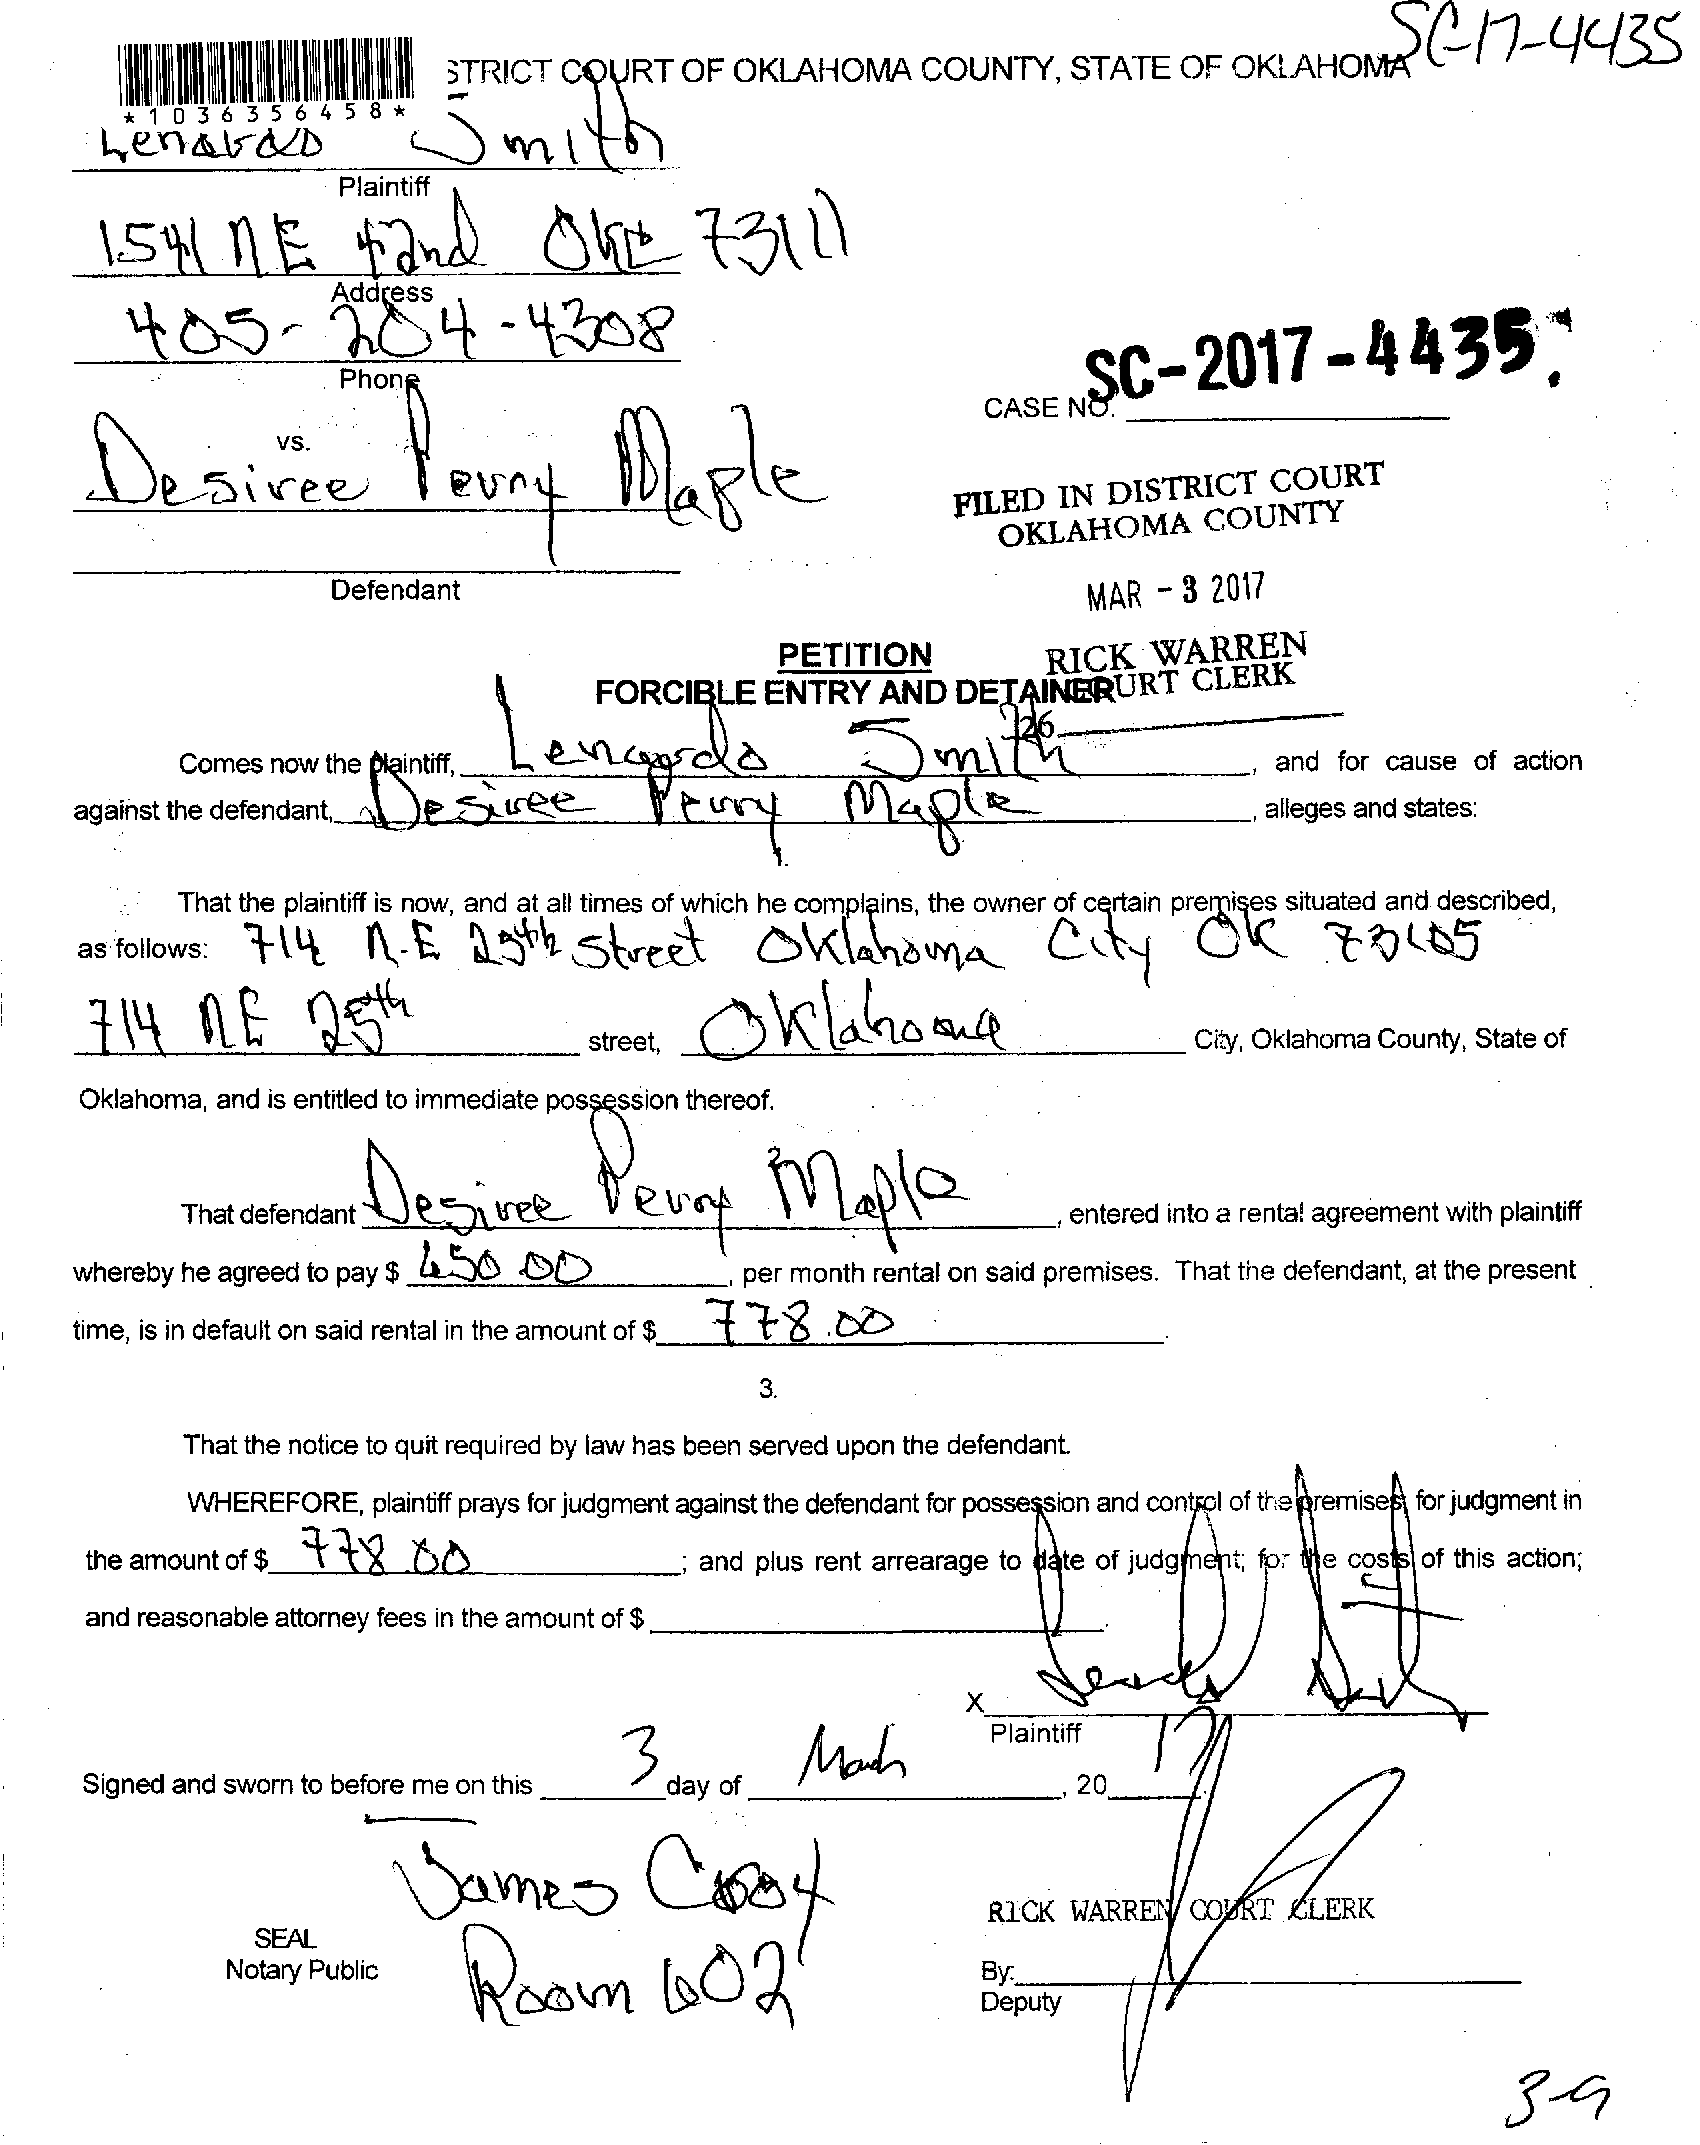 SC-17-4435
STRICT COURT OF OKLAHOMA COUNTY, STATE OF OKLAHOMA
*1036356458*
Lenardo Smith
Plaintiff
1541 NE 42nd OKC 73111
Address
405-204-4308
Phone
SC-2017-4435
CASE NO.
vs.
Desiree Perry Maple
FILED IN DISTRICT COURT
OKLAHOMA COUNTY
Defendant
MAR - 3 2017
PETITION
RICK WARREN
FORCIBLE ENTRY AND DETAINER
COURT CLERK
26
Comes now the plaintiff, Lenardo Smith, and for cause of action
against the defendant, Desiree Perry Maple, alleges and states:
That the plaintiff is now, and at all times of which he complains, the owner of certain premises situated and described,
as follows: 714 N.E 25th Street Oklahoma City OK 73105
714 NE 25th street, Oklahoma City, Oklahoma County, State of
Oklahoma, and is entitled to immediate possession thereof.
2
That defendant Desiree Perry Maple, entered into a rental agreement with plaintiff
whereby he agreed to pay $ 650.00, per month rental on said premises. That the defendant, at the present
time, is in default on said rental in the amount of $ 778.00.
3.
That the notice to quit required by law has been served upon the defendant.
WHEREFORE, plaintiff prays for judgment against the defendant for possession and control of the premises; for judgment in
the amount of $ 778.00; and plus rent arrearage to date of judgment; for the costs of this action;
and reasonable attorney fees in the amount of $
X
Plaintiff
Signed and sworn to before me on this 3 day of March, 2017.
James Cory
RICK WARREN COURT CLERK
SEAL
Notary Public
Room 602
By:
Deputy
3-9